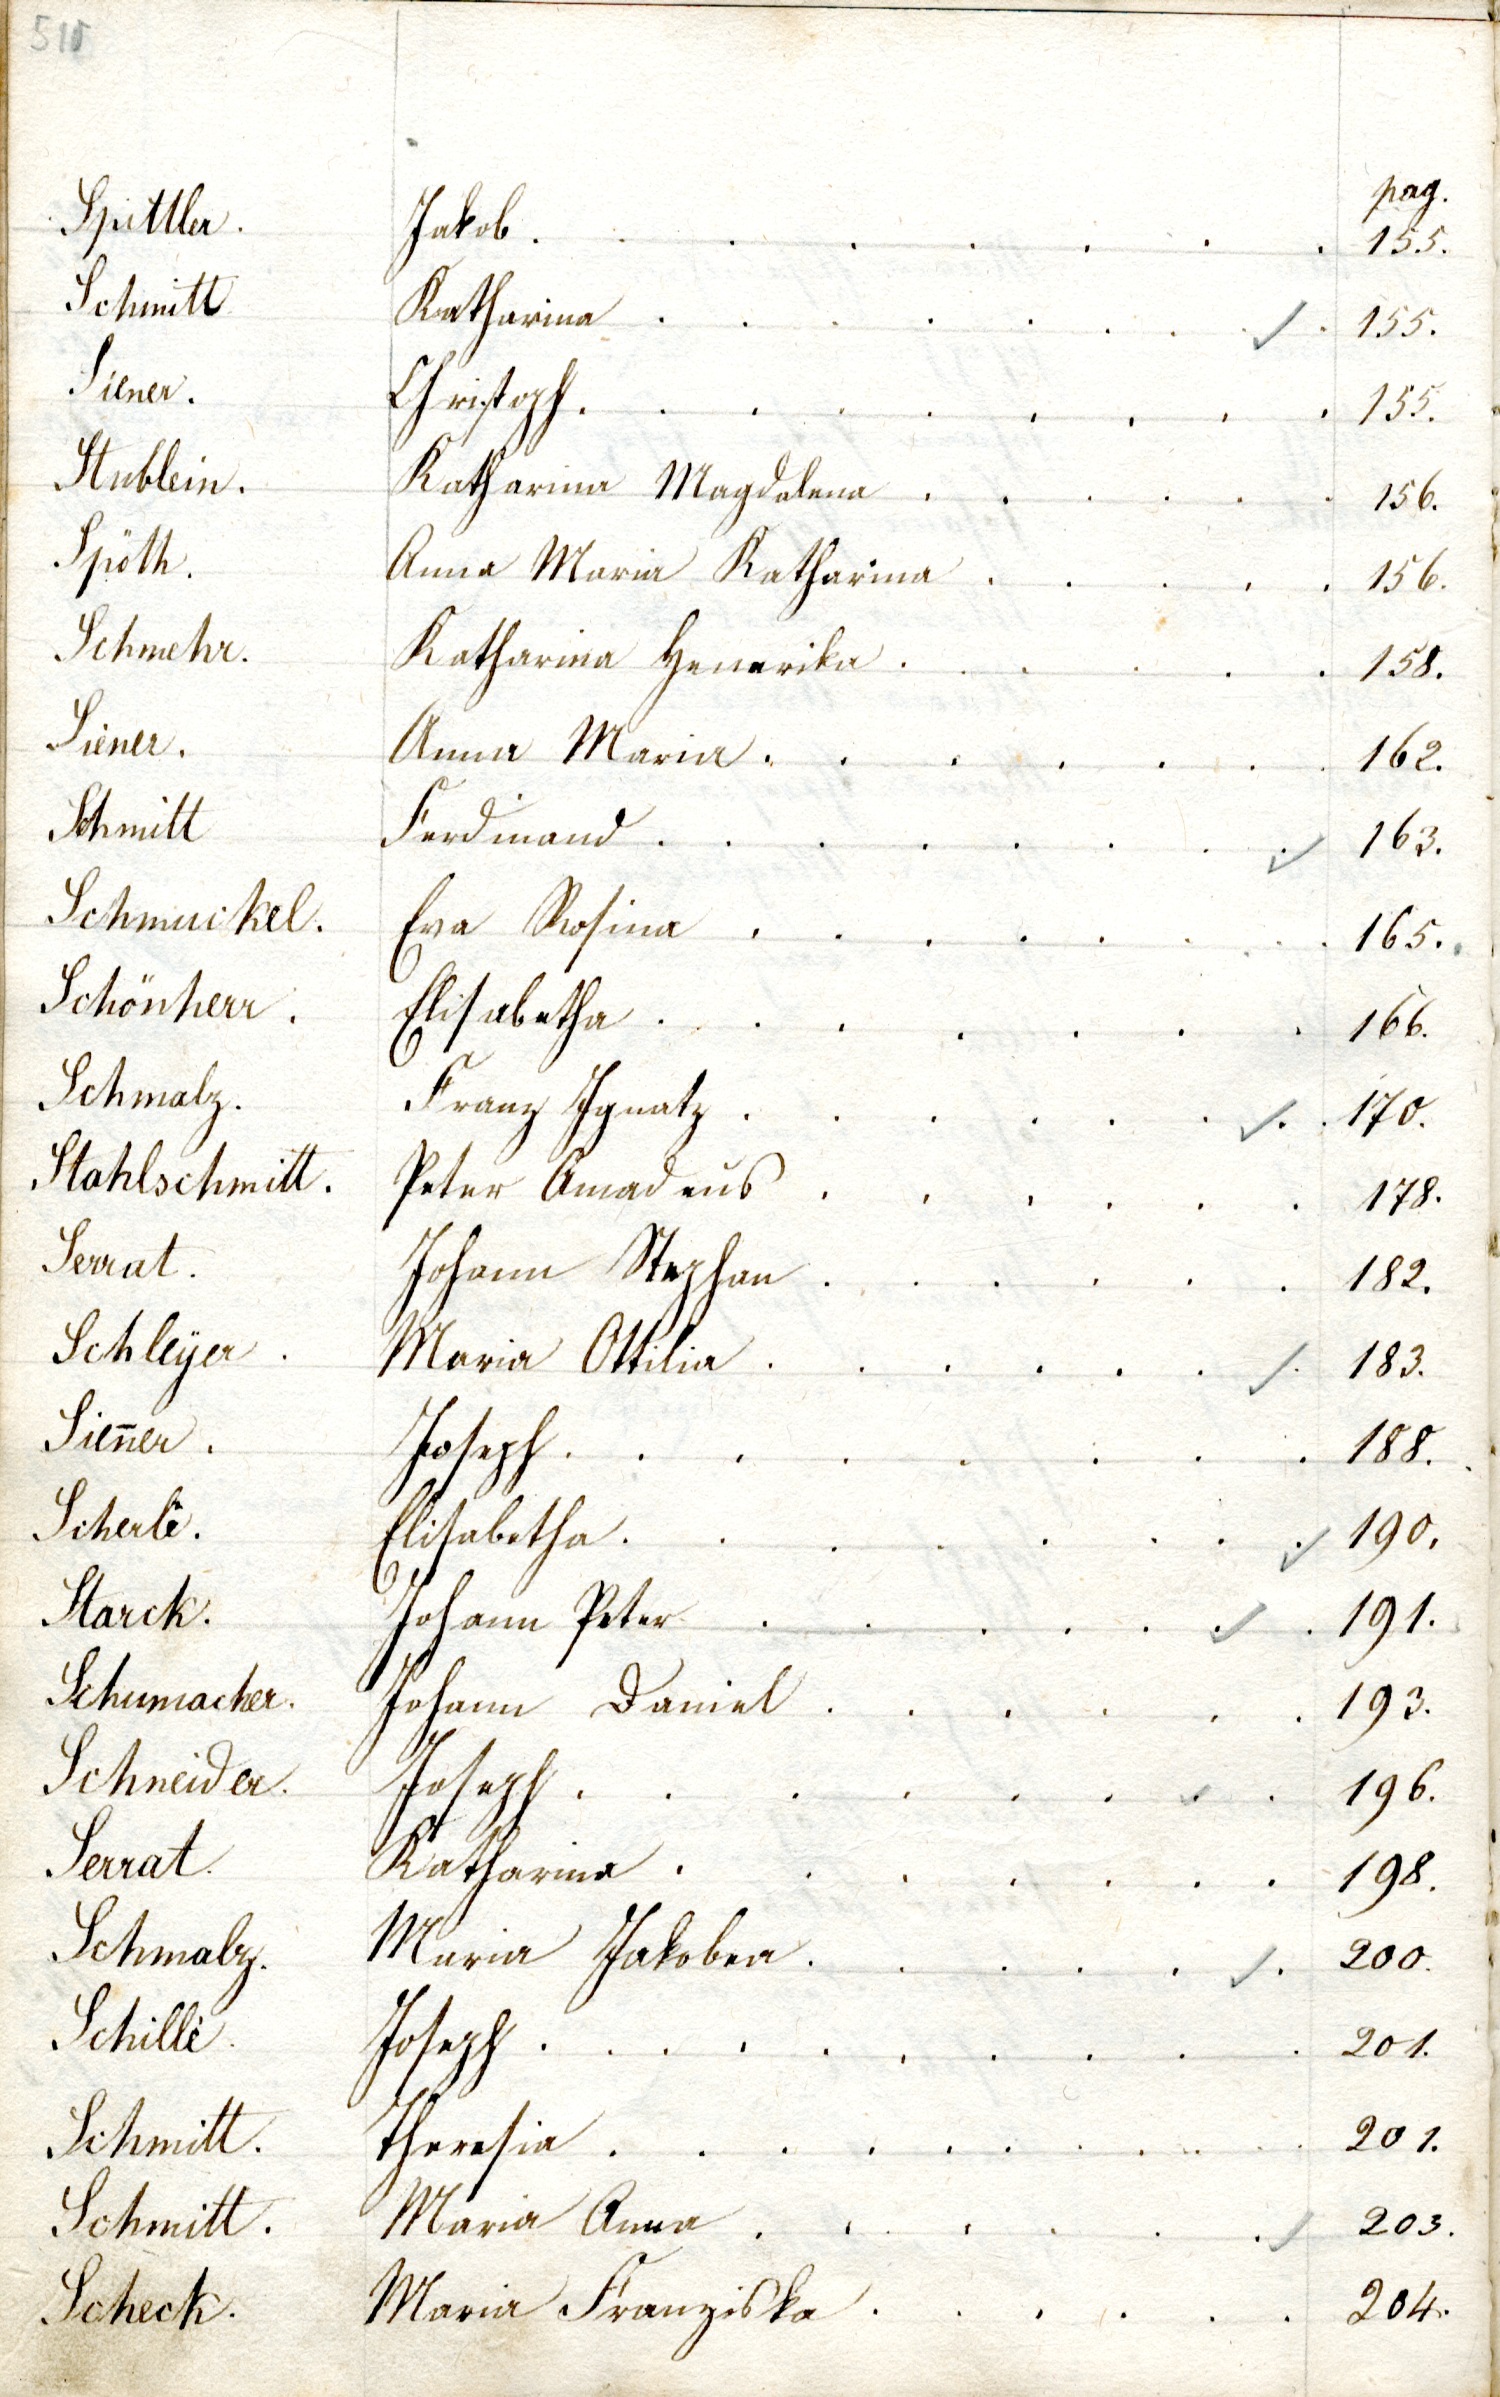 pag.
Spittler. Jakob. 155.
Schmitt Katharina 155.
Siener. Christoph. 155.
Stublein. Katharina Magdalena 156.
Späth. Anna Maria Katharina 156.
Schmehr. Katharina Henerika 158.
Siener. Anna Maria. 162.
Schmitt Ferdinand 163.
Schmuckel. Eva Rosina 165.
Schönherr. Elisabetha 166.
Schmalz. Franz Ignatz 170.
Stahlschmitt. Peter Amadeus 178.
Serrat. Johann Stephan 182.
Schleÿer. Maria Ottilia 183.
Sien̄er. Joseph. 188.
Scherle. Elisabetha. 190.
Starck. Johann Peter 191.
Schumacher. Johann Daniel 193.
Schneider. Joseph 196.
Serrat. Katharina 198.
Schmalz. Maria Jakobea. 200.
Schille Joseph 201.
Schmitt. Theresia 201.
Schmitt. Maria Anna 203.
Scheck. Maria Franziska 204.